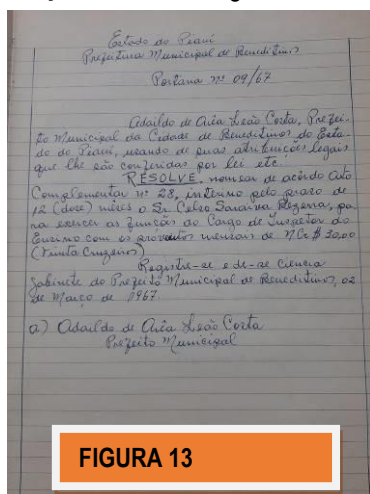 Estado do Piauí
Prefeitura Municipal de Beneditinos
Portaria nº 09/67
Adaildo de Area Leão Costa, Prefei-
to Municipal da Cidade de Beneditinos do Esta-
do do Piauí, usando de suas atribuições legais
que lhe são conferidas por lei etc.
RESOLVE, nomear de acôrdo Ato
Complementar nº 28, interino pelo prazo de
12 (doze) mêses o Sr. Celso Saraiva Bezerra, pa-
ra exercer as funções do Cargo de Inspetor do
Ensino com os proventos mensais de NCr$ 30,00
(trinta Cruzeiros)
Registre-se e dê-se Ciência
Gabinete do Prefeito Municipal de Beneditinos, 02
de Março de 1967.
a) Adaildo de Area Leão Costa
Prefeito Municipal
FIGURA 13